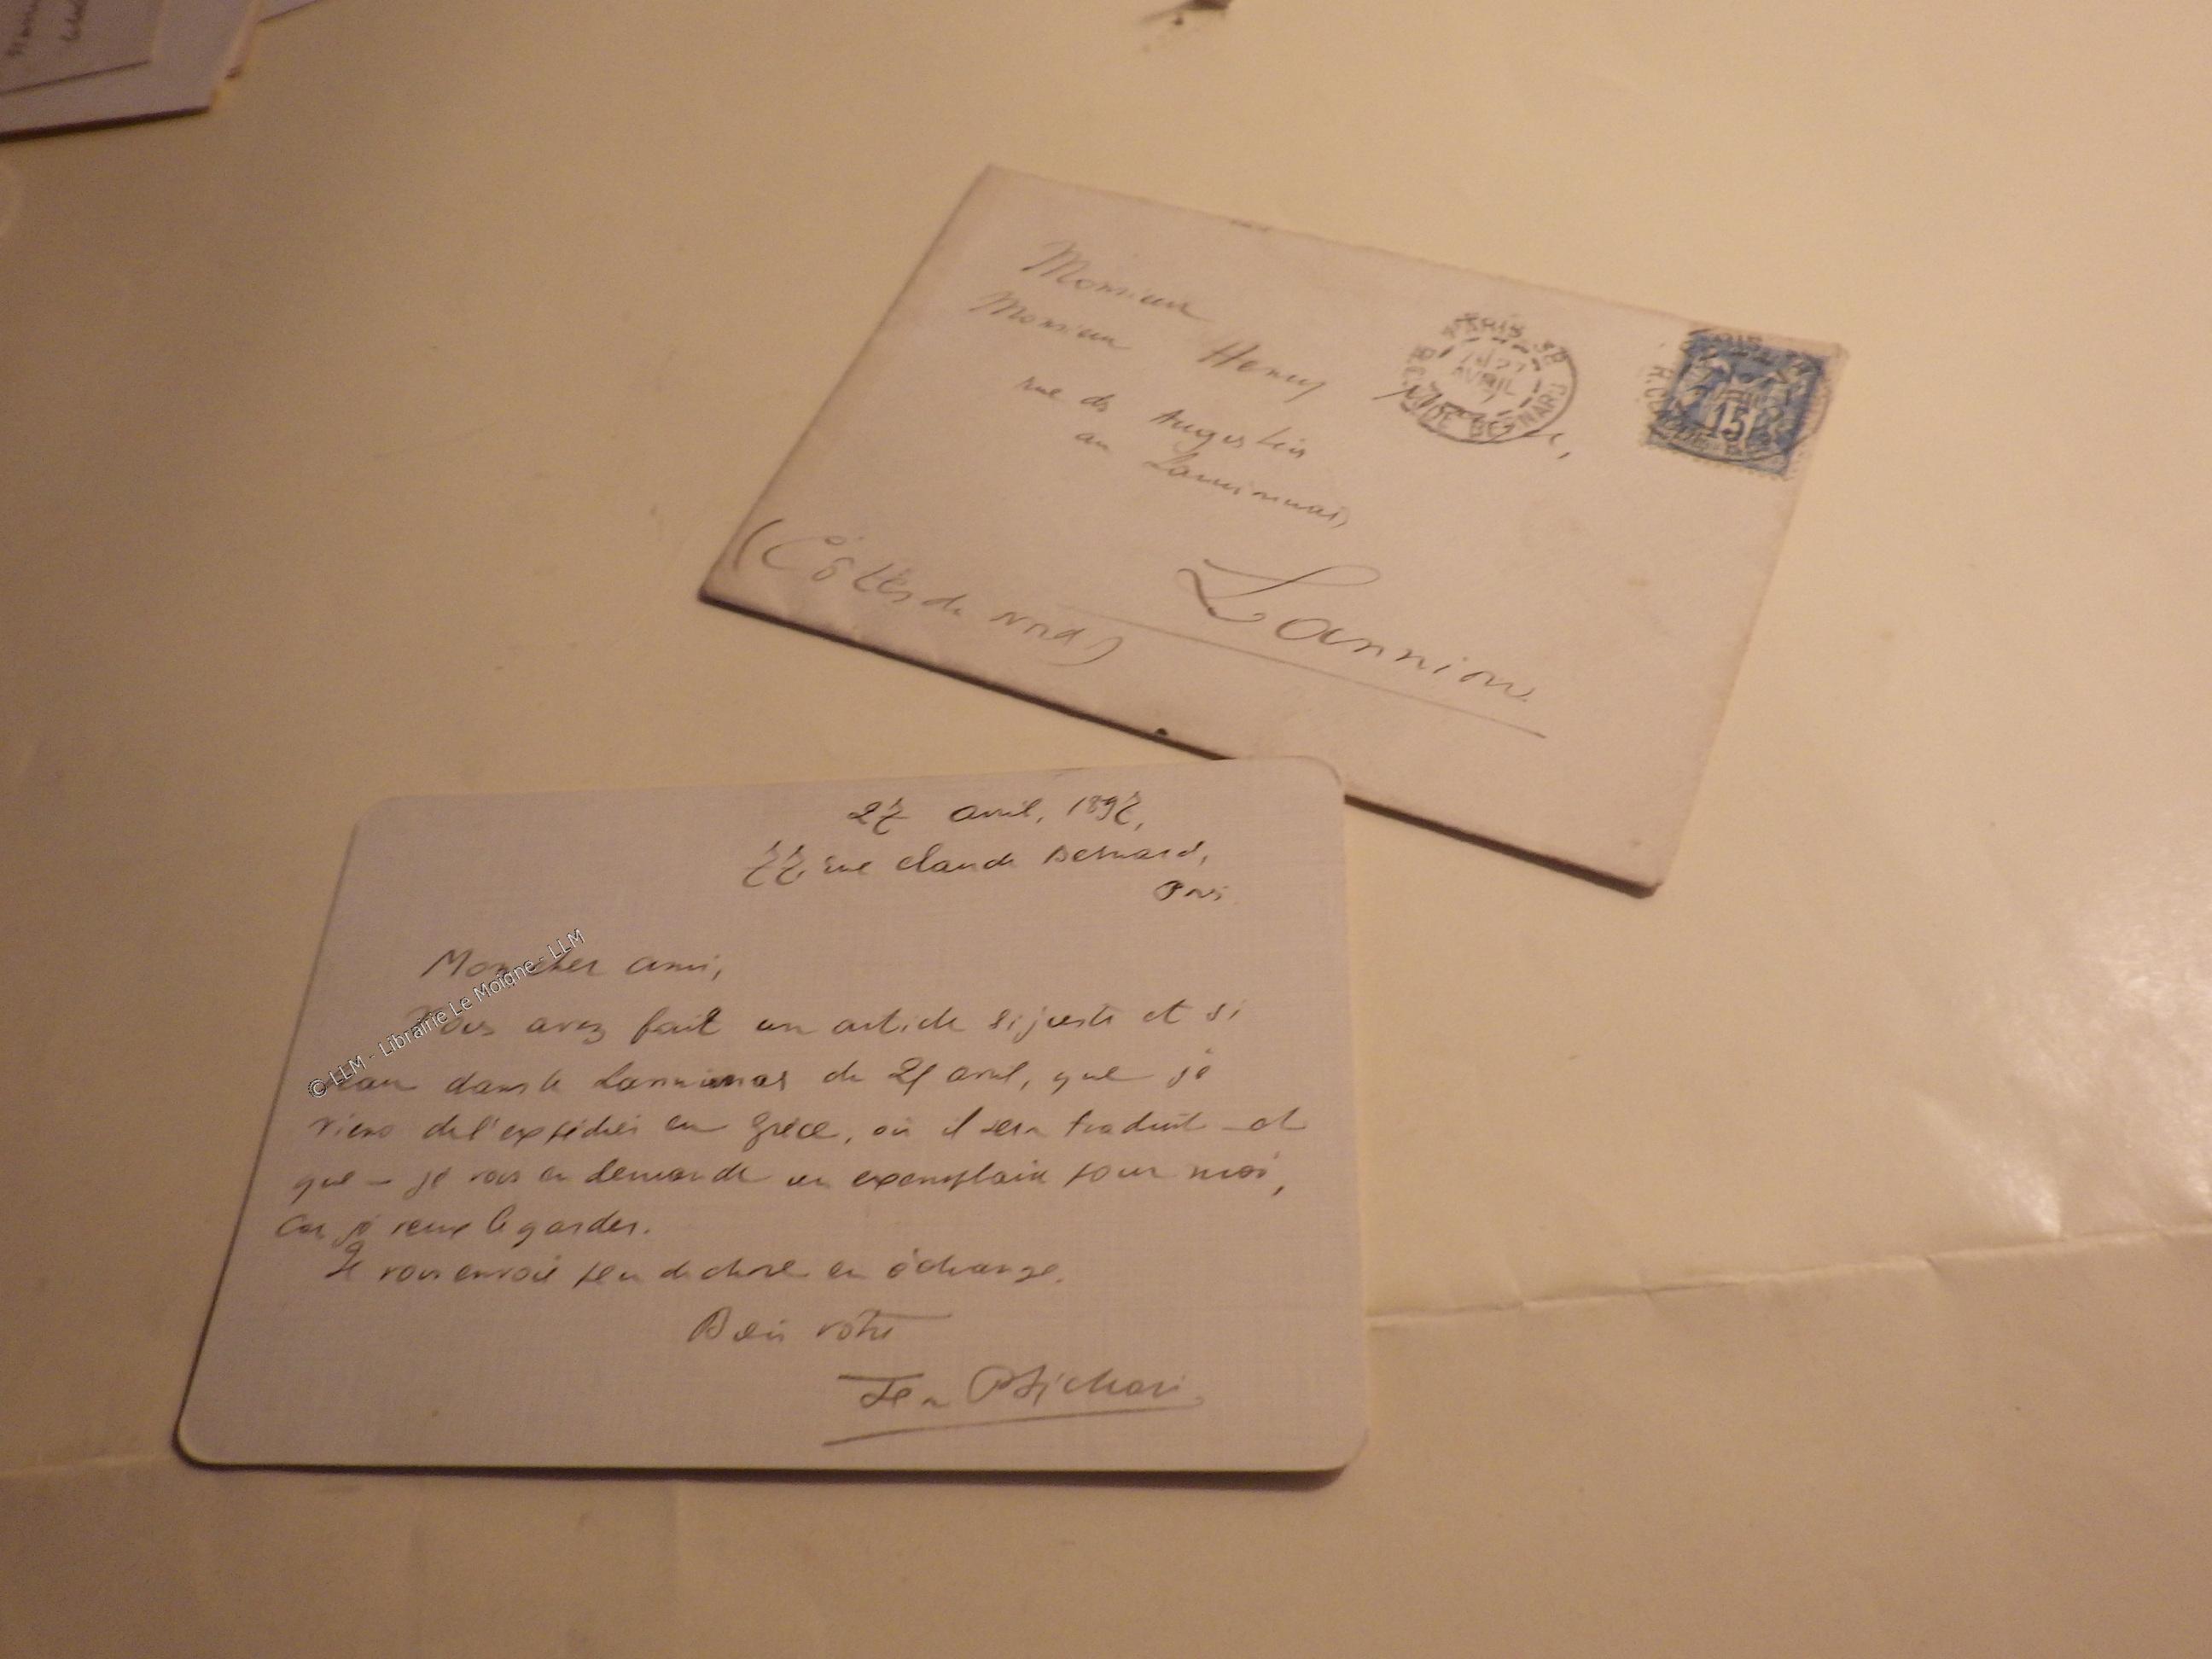 Monsieur
Monsieur Henry
rue des Augustins
au Lannionnais
Lannion
(Côtes du Nord)
PARIS
27
AVRIL
R. CLAUDE BERNARD
15
27 avril, 1897,
77, rue Claude Bernard,
Paris
Mon cher ami,
Vous avez fait un article si juste et si
beau dans le Lannionnais du 21 avril, que je
viens de l'expédier en Grèce, où il sera traduit — et
que — je vous en demande un exemplaire pour moi,
Car je veux le garder.
Je vous envoie peu de chose en échange.
Bien vôtre
Jean Psichari
© LLM - Librairie Le Moigne - LLM